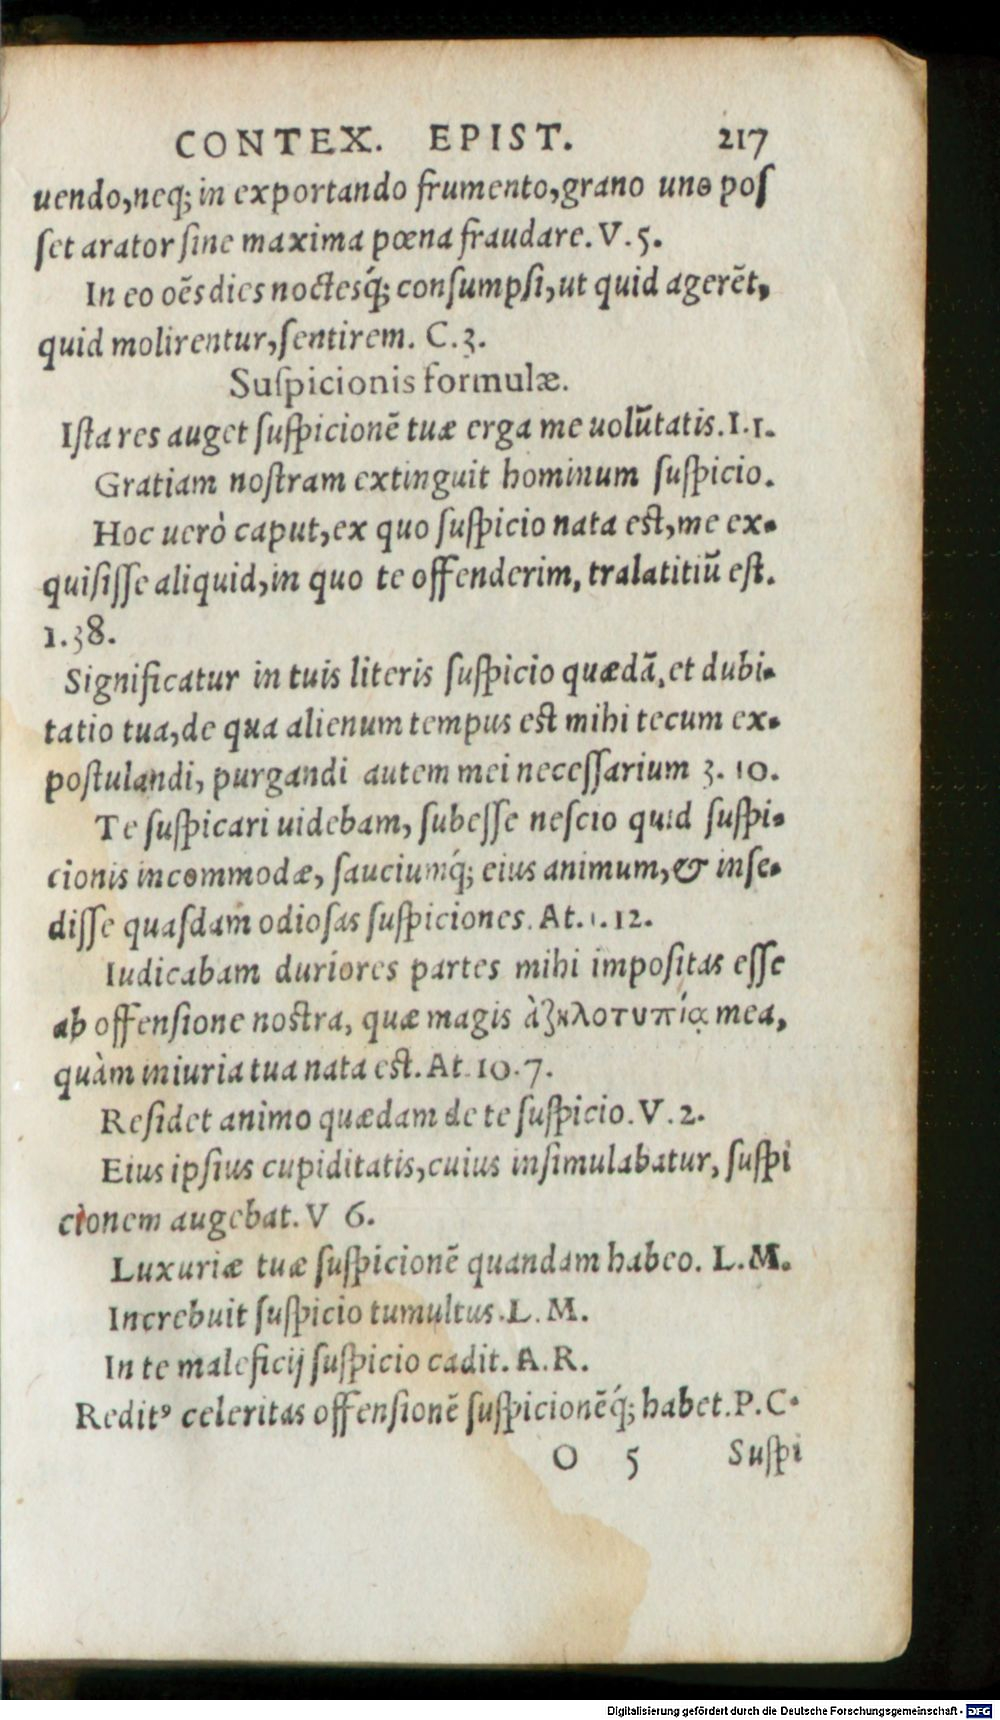 CONTEX. EPIST. 217
uendo,neq; in exportando frumento,grano uno poſ
ſet arator ſine maxima pœna fraudare. V. 5.
In eo oẽs dies noctesq́; conſumpſi, ut quid agerẽt,
quid molirentur, ſentirem. C. 3.
Suſpicionis formulæ.
Iſta res auget ſuſpicionẽ tuæ erga me uolũtatis. I. 1.
Gratiam noſtram extinguit hominum ſuſpicio.
Hoc uerò caput, ex quo ſuſpicio nata eſt, me ex-
quiſiſſe aliquid, in quo te offenderim, tralatitiũ eſt.
1. 38.
Significatur in tuis literis ſuſpicio quædã, et dubi-
tatio tua, de qua alienum tempus eſt mihi tecum ex-
poſtulandi, purgandi autem mei neceſſarium 3. 10.
Te ſuſpicari uidebam, ſubeſſe neſcio quid ſuſpi-
cionis incommodæ, ſauciumq́; eius animum, & inſe-
diſſe quaſdam odioſas ſuſpiciones. At. 1. 12.
Iudicabam duriores partes mihi impoſitas eſſe
ab offenſione noſtra, quæ magis ὰζηλοτυπίᾳ mea,
quàm iniuria tua nata eſt. At. 10. 7.
Reſidet animo quædam de te ſuſpicio. V. 2.
Eius ipſius cupiditatis, cuius inſimulabatur, ſuſpi
cionem augebat. V 6.
Luxuriæ tuæ ſuſpicionẽ quandam habeo. L. M.
Increbuit ſuſpicio tumultus. L. M.
In te maleficij ſuſpicio cadit. A. R.
Reditꝰ celeritas offenſionẽ ſuſpicionẽq́; habet. P. C.
O 5 Suſpi
Digitalisierung gefördert durch die Deutsche Forschungsgemeinschaft - DFG